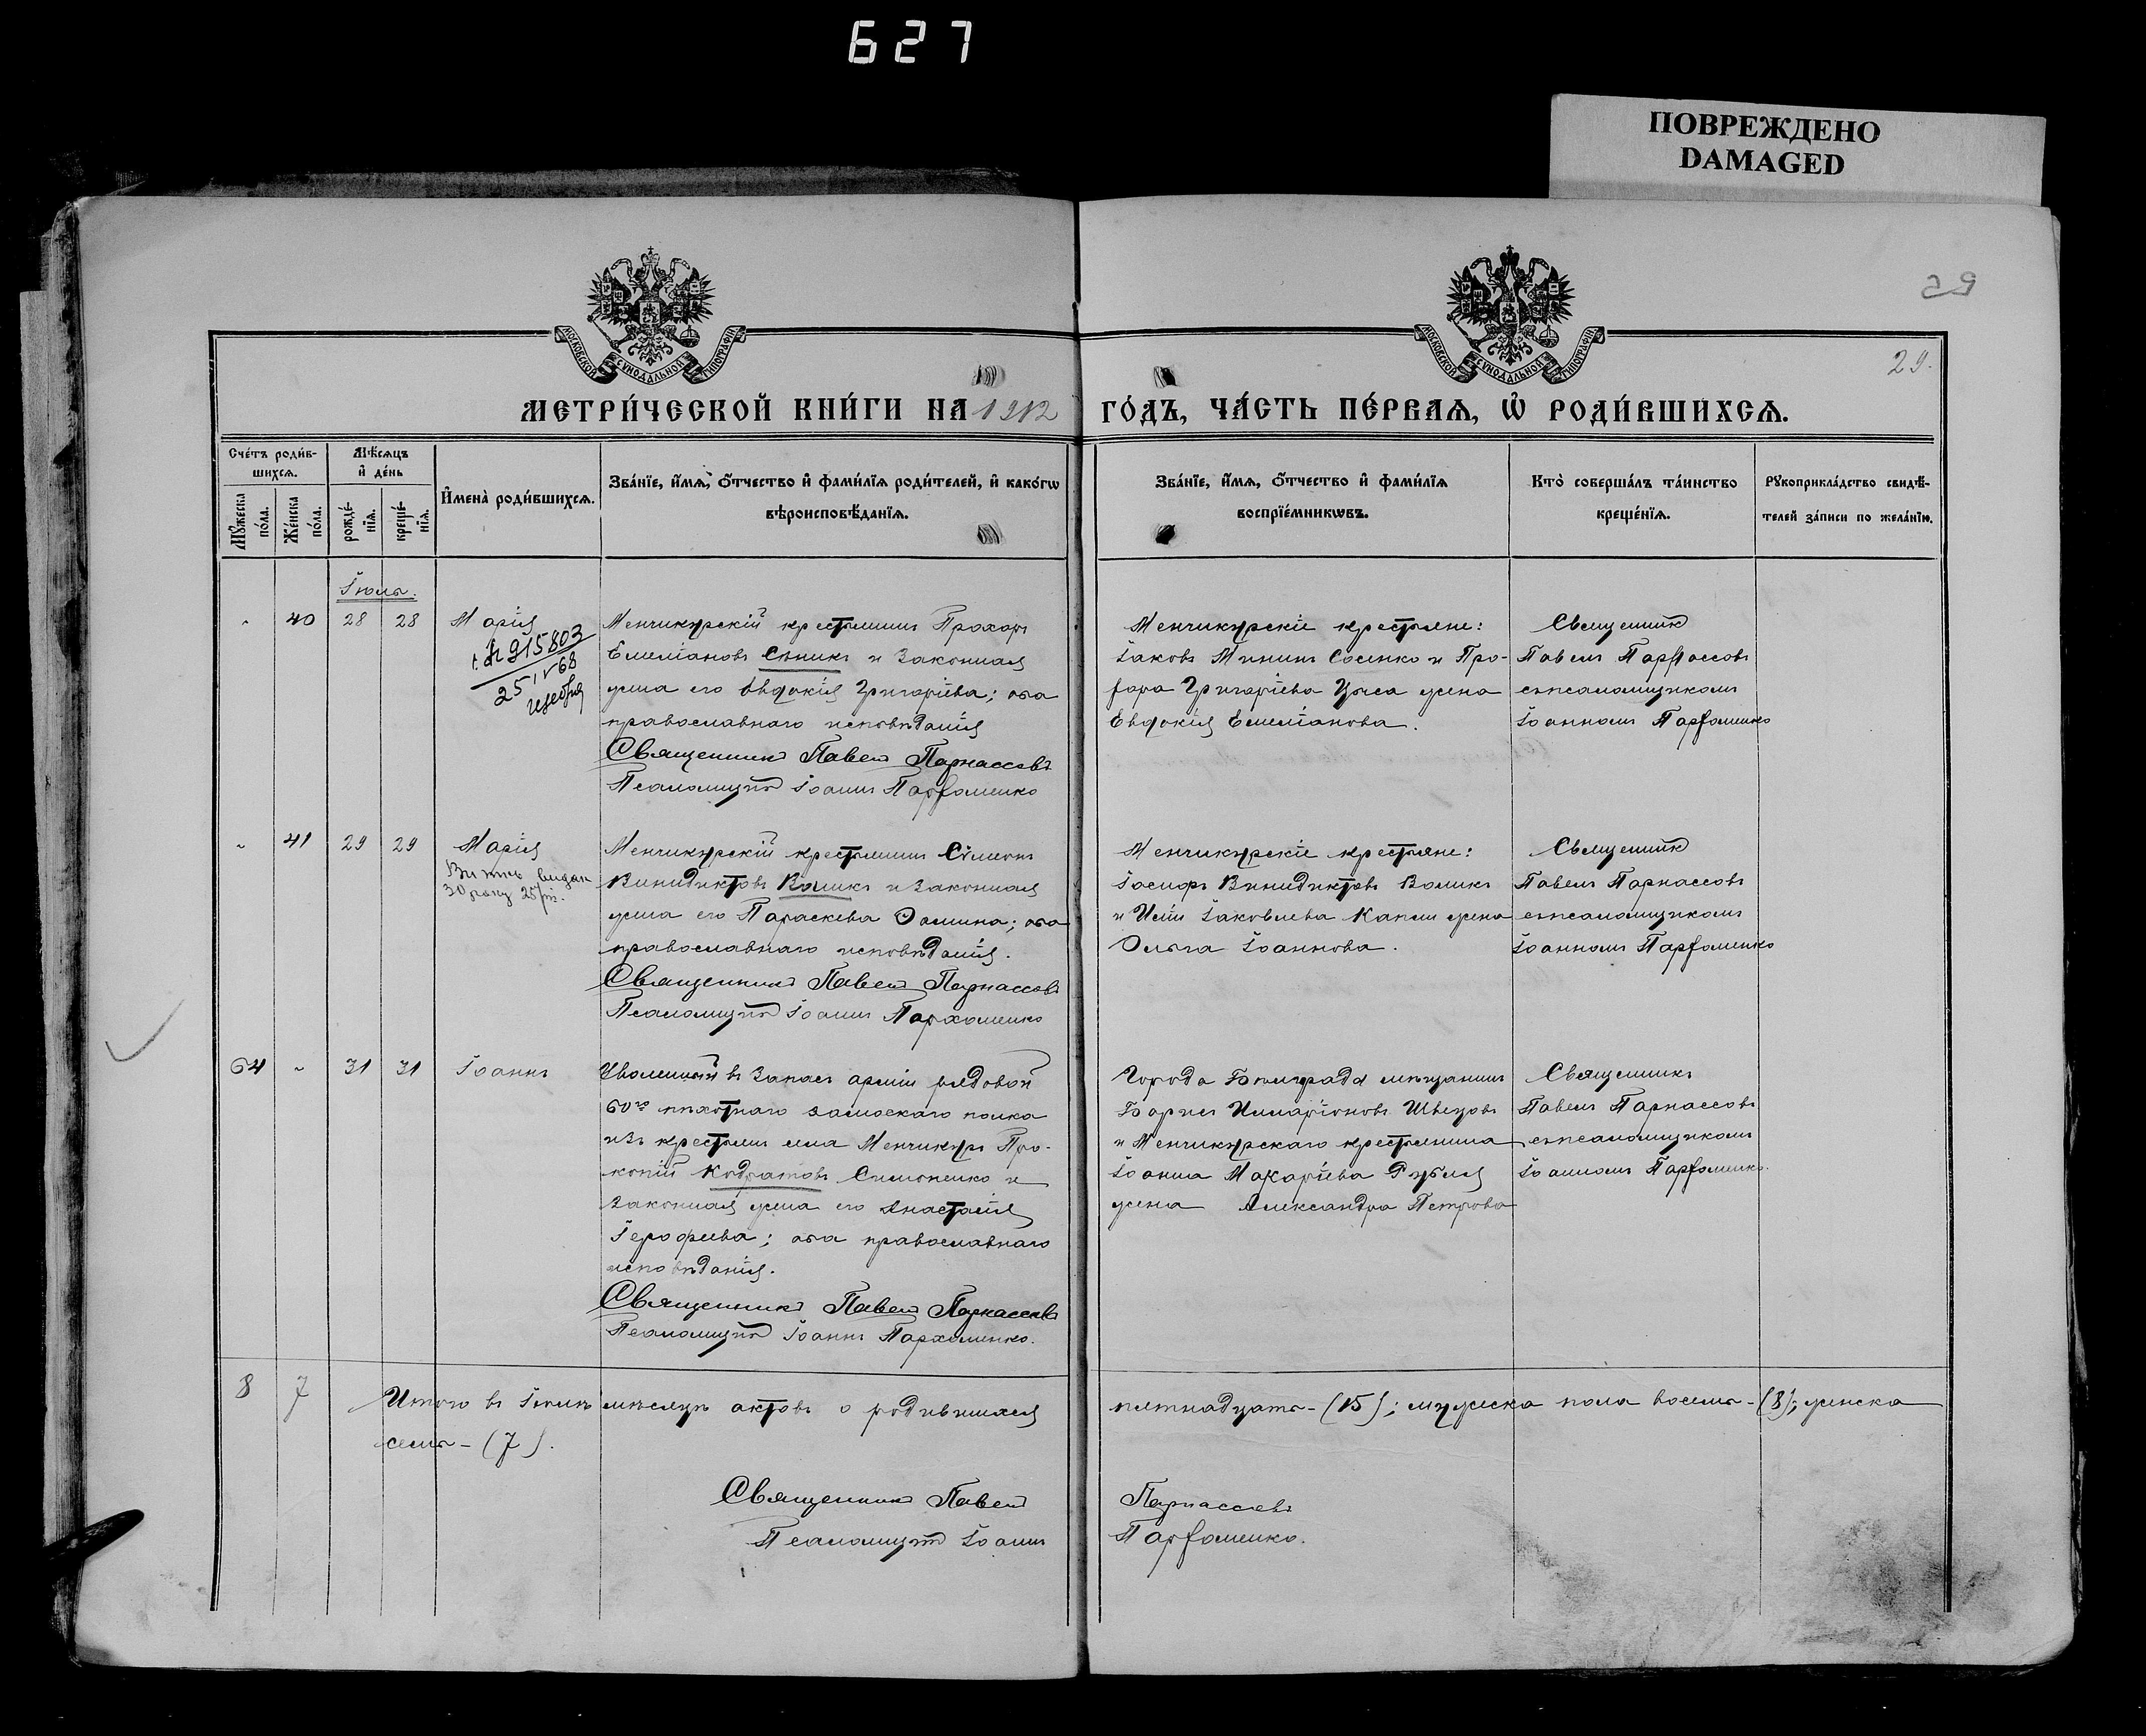 627
ПОВРЕЖДЕНО
DAMAGED
29
29.
МОСКОВСКОЙ СѴНОДАЛЬНОЙ ТИПОГРАФІИ
МОСКОВСКОЙ СѴНОДАЛЬНОЙ ТИПОГРАФІИ
МЕТРИ́ЧЕСКОЙ КНИ́ГИ НА 1912 ГО́ДЪ, ЧА́СТЬ ПЕ́РВАѦ, Ѡ҆ РОДИ́ВШИХСѦ.
Сче́тъ роди́в-
шихсѧ.
Мꙋжеска по́ла.
Же́нска по́ла.
Мѣ́сѧцъ
и҆ де́нь
рожде́-
нїѧ.
креще́-
нїѧ.
И҆мена̀ роди́вшихсѧ.
Зва́нїе, и҆́мѧ, ѻ҆́тчество и҆ фами́лїѧ роди́телей, и҆ како́гѡ
вѣроисповѣ́данїѧ.
Зва́нїе, и҆́мѧ, ѻ҆́тчество и҆ фами́лїѧ
воспрїе́мникѡвъ.
Кто̀ соверша́лъ та́инство
креще́нїѧ.
Рꙋкоприкла́дство свидѣ́-
телей за́писи по жела́нїю.
Іюль.
" 40 28 28 Марія
915803
25,V68
Менчикурскій крестьянинъ Прохоръ
Емеліановъ Сѣникъ и законная
жена его Евдокія Григоріева; оба
православнаго исповѣданія
Священникъ Павелъ Парнассовъ
Псаломщикъ Іоаннъ Парѳоменко
Менчикурскіе крестьяне:
Іаковъ Мининъ Сосенко и Про-
хора Григоріева Цыса жена
Евдокія Емеліанова.
Священникъ
Павелъ Парнассовъ
съ псаломщикомъ
Іоанномъ Парѳоменко
" 41 29 29 Марія
Витягъ видан
30 року 25/
Менчикурскій крестьянинъ Симеонъ
Винидиктовъ Воликъ и законная
жена его Параскева Ѳомина; оба
православнаго исповѣданія.
Священникъ Павелъ Парнассовъ
Псаломщикъ Іоаннъ Пархоменко
Менчикурскіе крестьяне:
Іосифъ Винидиктовъ Воликъ
и Иліи Іаковлева жена
Ольга Іоаннова.
Священникъ
Павелъ Парнассовъ
съ псаломщикомъ
Іоанномъ Парѳоменко
64 " 31 31 Іоаннъ
Уволенный въ запасъ арміи рядовой
60го пѣхотнаго Замоскаго полка
изъ крестьянъ села Менчикуръ Про-
копій Кодратовъ Симоненко и
законная жена его Анастасія
Іерофеева; оба православнаго
исповѣданія.
Священникъ Павелъ Парнассовъ
Псаломщикъ Іоаннъ Пархоменко.
Города Бѣлграда мѣщанинъ
Борисъ Иларіоновъ Швецовъ
и Менчикурскаго крестьянина
Іоанна Макаріева жена
Александра Петрова
Священникъ
Павелъ Парнассовъ
съ псаломщикомъ
Іоанномъ Парѳоменко.
8 7 Итого въ Іюлѣ мѣсяцѣ актовъ о родившихся пятнадцать-(15); мужеска пола восемь-(8); женска
семь-(7).
Священникъ Павелъ Парнассовъ
Псаломщикъ Іоаннъ Парѳоменко.